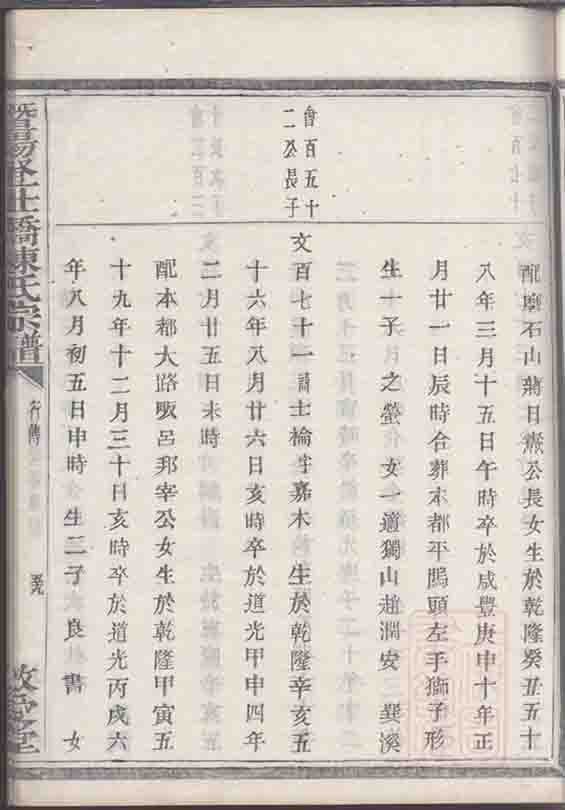 配塵石山蔣日燕公長女生於乾隆癸丑五十
八年三月十五日午時卒於咸豐庚申十年正
月廿一日辰時合葬本都平鴅頭左手獅子形
生一子 之瑩 女一適獨山趙澗安
會百五十
二公長子
文百七十一諱士檢字嘉木生於乾隆辛亥五
十六年八月廿六日亥時卒於道光甲申四年
二月廿五日未時
配本都大路畈呂邦宰公女生於乾隆甲寅五
十九年十二月三十日亥時卒於道光丙戌六
年八月初五日申時 生二子 良 書 女
暨陽 社橋陳氏宗譜
行傳